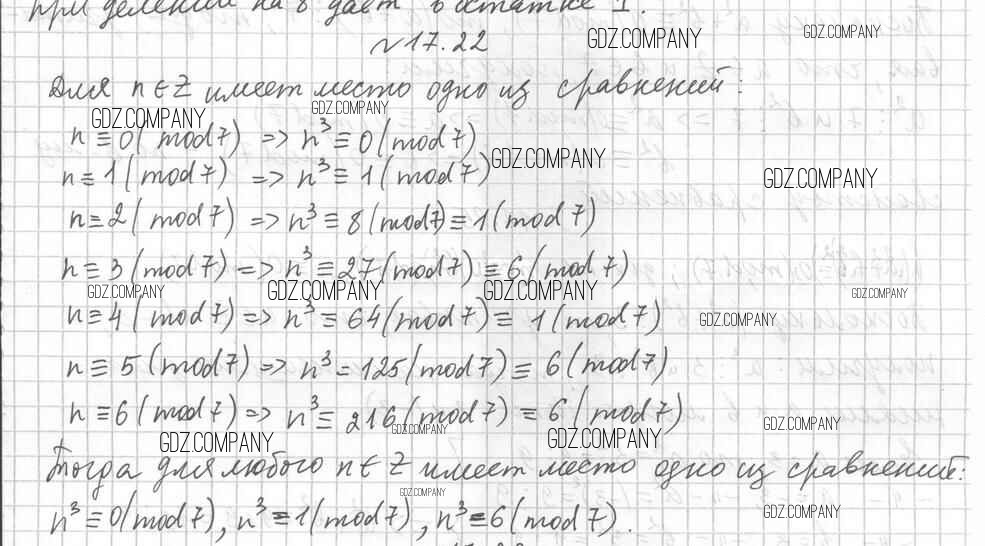 при делении на 8 даёт в остатке 1.
№17.22
GDZ.COMPANY
GDZ.COMPANY
Для n∈Z имеет место одно из сравнений:
GDZ.COMPANY
GDZ.COMPANY
n≡0(mod7) => n³≡0(mod7)
GDZ.COMPANY
n≡1(mod7) => n³≡1(mod7)
GDZ.COMPANY
n≡2(mod7) => n³≡8(mod7)≡1(mod7)
n≡3(mod7) => n³≡27(mod7)≡6(mod7)
GDZ.COMPANY
GDZ.COMPANY
GDZ.COMPANY
GDZ.COMPANY
n≡4(mod7) => n³≡64(mod7)≡1(mod7)
GDZ.COMPANY
n≡5(mod7) => n³=125(mod7)≡6(mod7)
n≡6(mod7) => n³≡216(mod7)≡6(mod7)
GDZ.COMPANY
GDZ.COMPANY
GDZ.COMPANY
GDZ.COMPANY
Тогда для любого n∈Z имеет место одно из сравнений:
GDZ.COMPANY
n³≡0(mod7), n³≡1(mod7), n³≡6(mod7).
GDZ.COMPANY